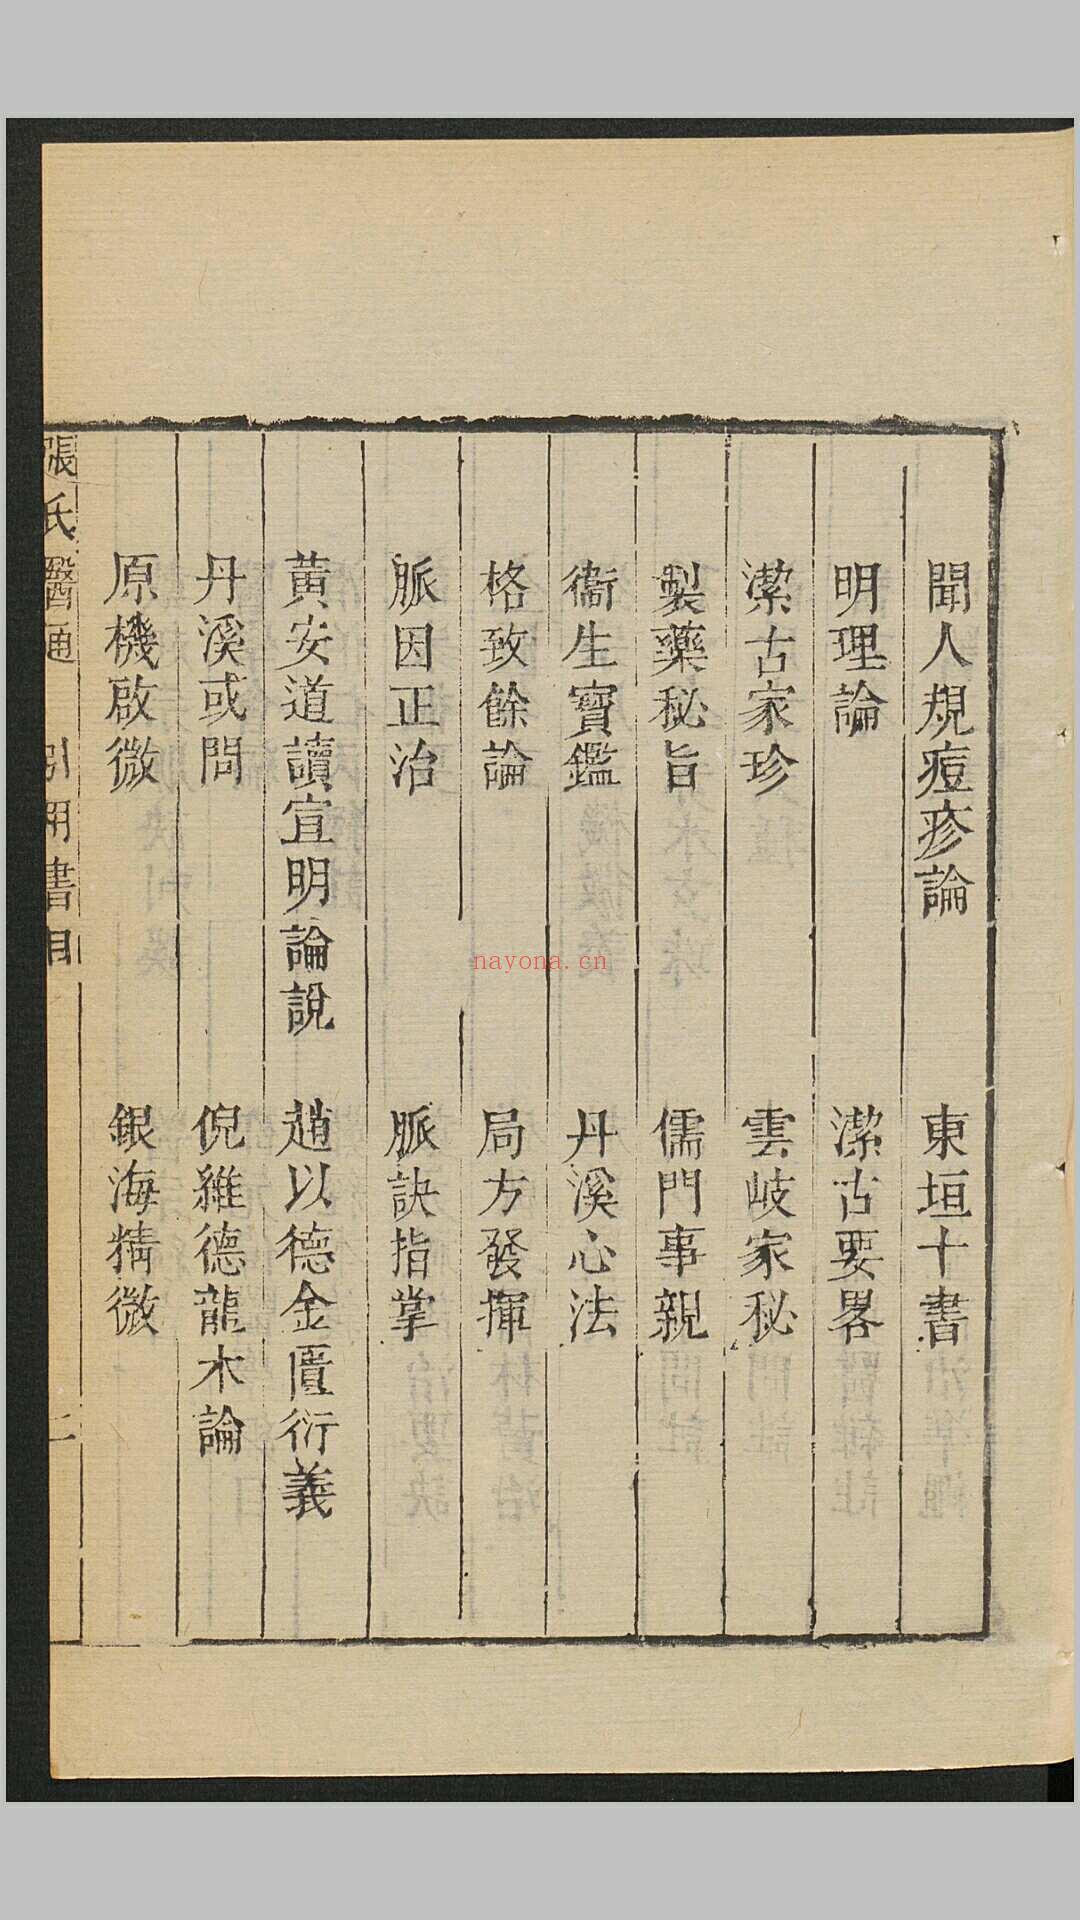 聞人規痘疹論　東垣十書
明理論　潔古要畧
潔古家珍　雲岐家秘
製藥秘旨　儒門事親
衞生寶鑑　丹溪心法
格致餘論　局方發揮
脈因正治　脈訣指掌
黃安道讀宣明論說　趙以德金匱衍義
丹溪或問　倪維德龍木論
原機啟微　銀海精微
張氏醫通　引用書目　二
nayona.cn